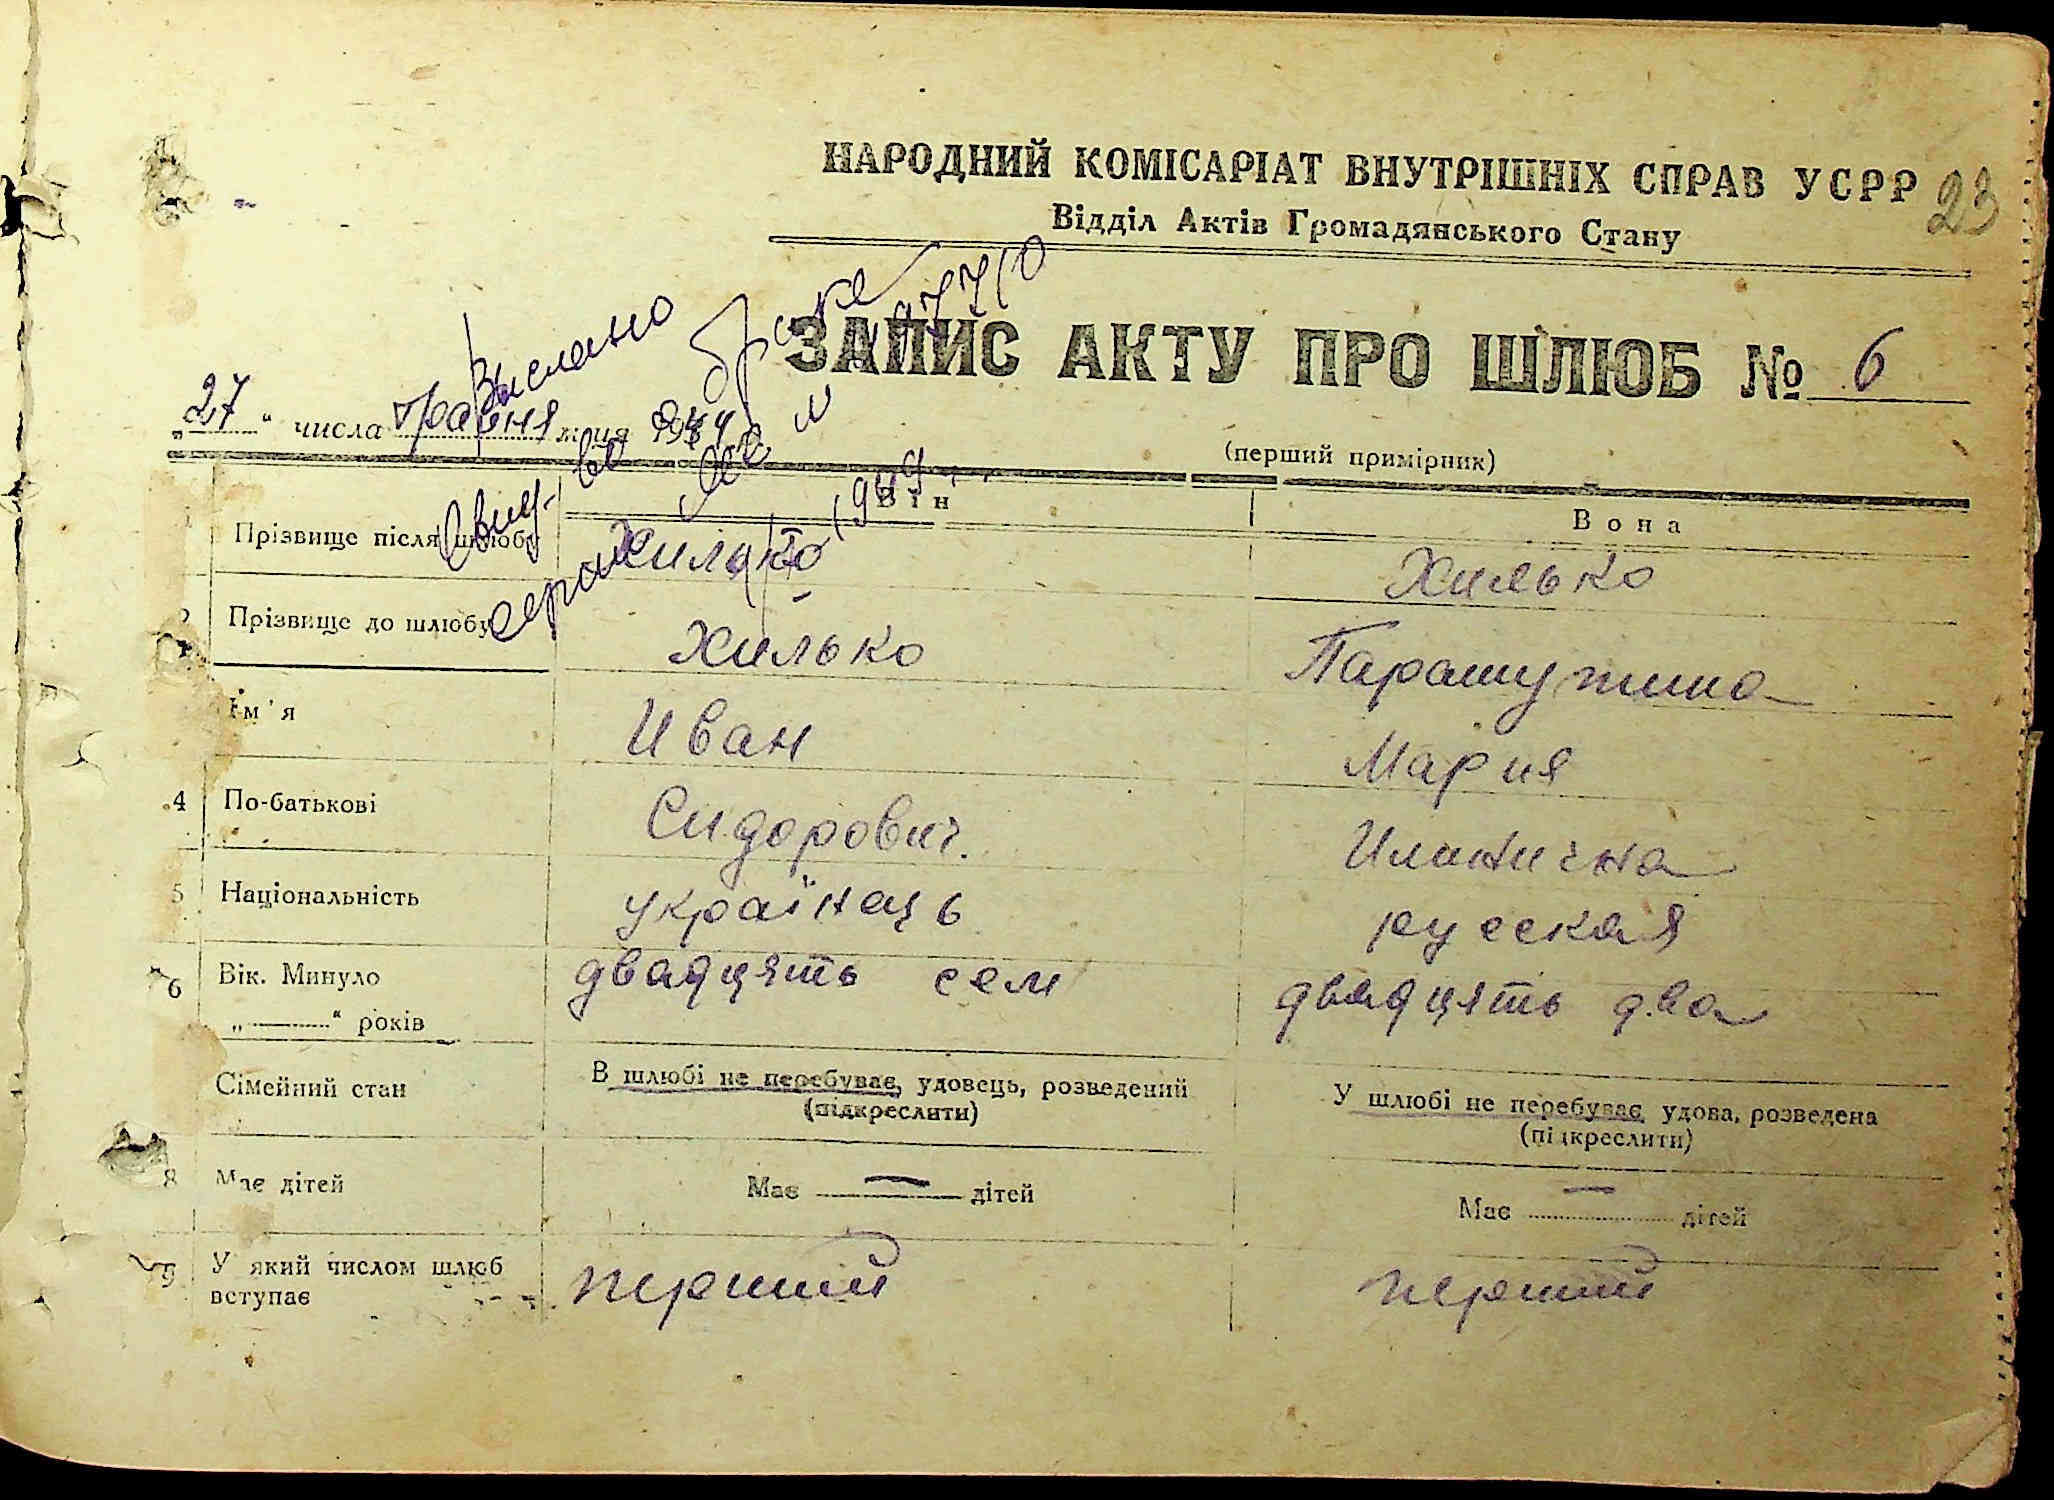 НАРОДНИЙ КОМІСАРІАТ ВНУТРІШНІХ СПРАВ УСРР 23
Відділ Актів Громадянського Стану
ЗАПИС АКТУ ПРО ШЛЮБ № 6
„27“ числа травня м-ця 1944
(перший примірник)
Выслано
Він Вона
1 Прізвище після шлюбу Хилько Хилько
2 Прізвище до шлюбу Хилько Парашутина
Ім'я Иван Мария
4 По-батькові Сидорович. Илинична
5 Національність українець русская
6 Вік. Минуло двадцять сем двадцять два
„ “ років
Сімейний стан В шлюбі не перебуває, удовець, розведений У шлюбі не перебуває, удова, розведена
(підкреслити) (підкреслити)
8 Має дітей Має — дітей Має — дітей
9 У який числом шлюб перший перший
вступає